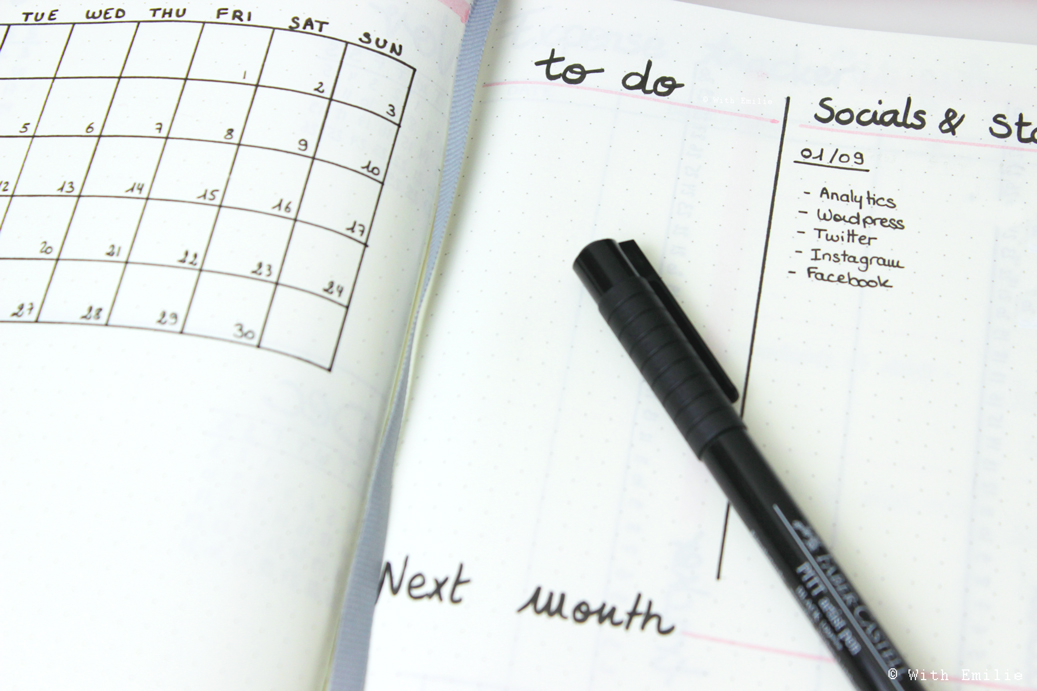 TUE WED THU FRI SAT SUN
1 2 3
5 6 7 8 9 10
12 13 14 15 16 17
20 21 22 23 24
27 28 29 30
to do
© With Emilie
Socials &
01/09
- Analytics
- Wordpress
- Twitter
- Instagram
- Facebook
Next month
FABER-CASTELL
PITT artist pen
© With Emilie